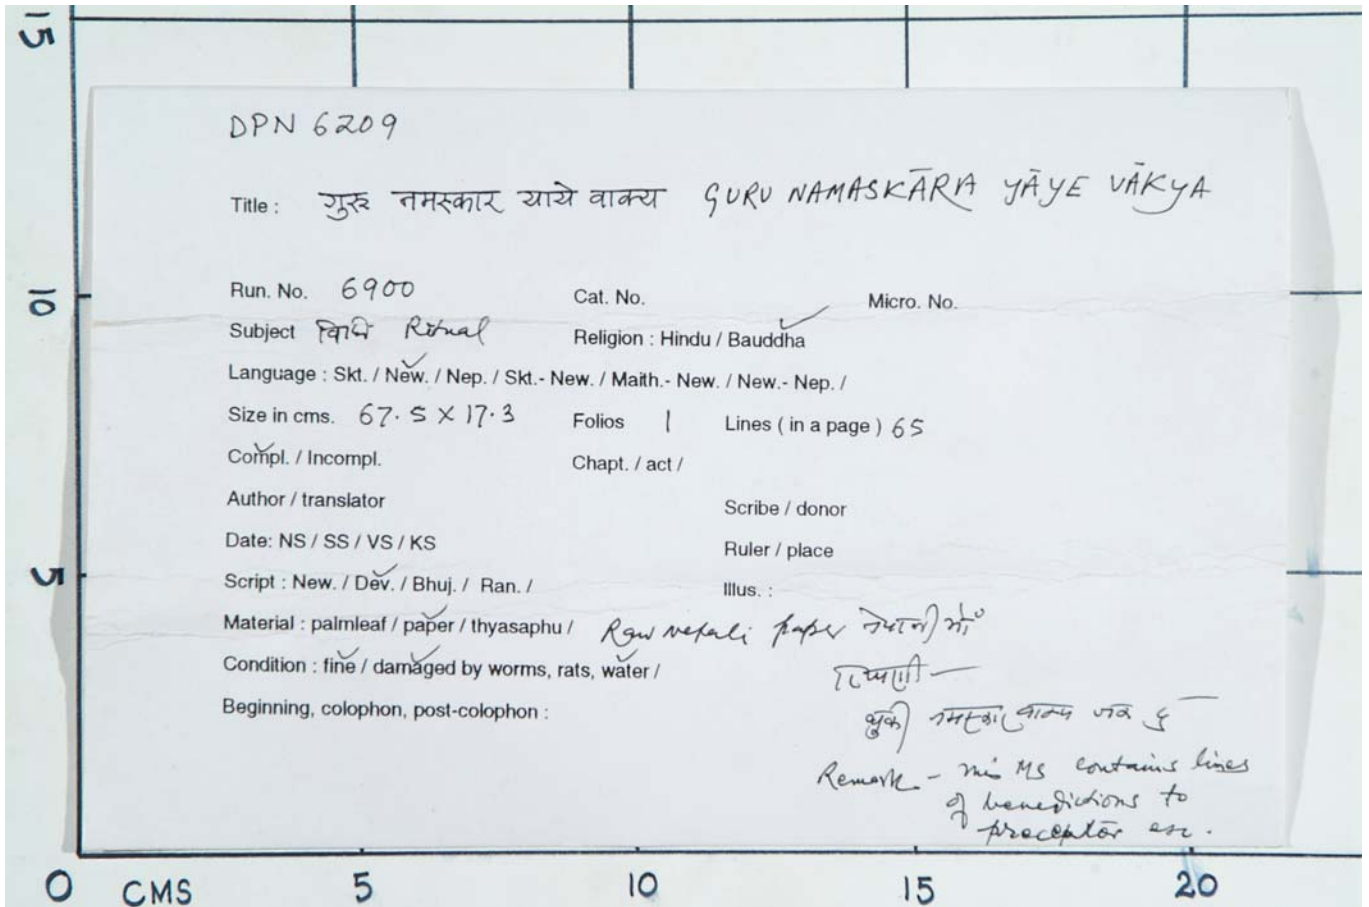 15
DPN 6209
Title : गुरु नमस्कार याये वाक्य GURU NAMASKĀRA YĀYE VĀKYA
10
Run. No. 6900 Cat. No. Micro. No.
Subject विधि Ritual Religion : Hindu / Bauddha
Language : Skt. / New. / Nep. / Skt.- New. / Maith.- New. / New.- Nep. /
Size in cms. 67.5 X 17.3 Folios 1 Lines ( in a page ) 65
Compl. / Incompl. Chapt. / act /
Author / translator Scribe / donor
Date: NS / SS / VS / KS Ruler / place
5
Script : New. / Dev. / Bhuj. / Ran. / Illus. :
Material : palmleaf / paper / thyasaphu / Raw nepali paper नेपाली भौं
Condition : fine / damaged by worms, rats, water /
टिप्पणी —
Beginning, colophon, post-colophon :
थुकी नमस्कार वाक्य जक दु
Remark - This MS contains lines
of benedictions to
preceptor
0 CMS 5 10 15 20